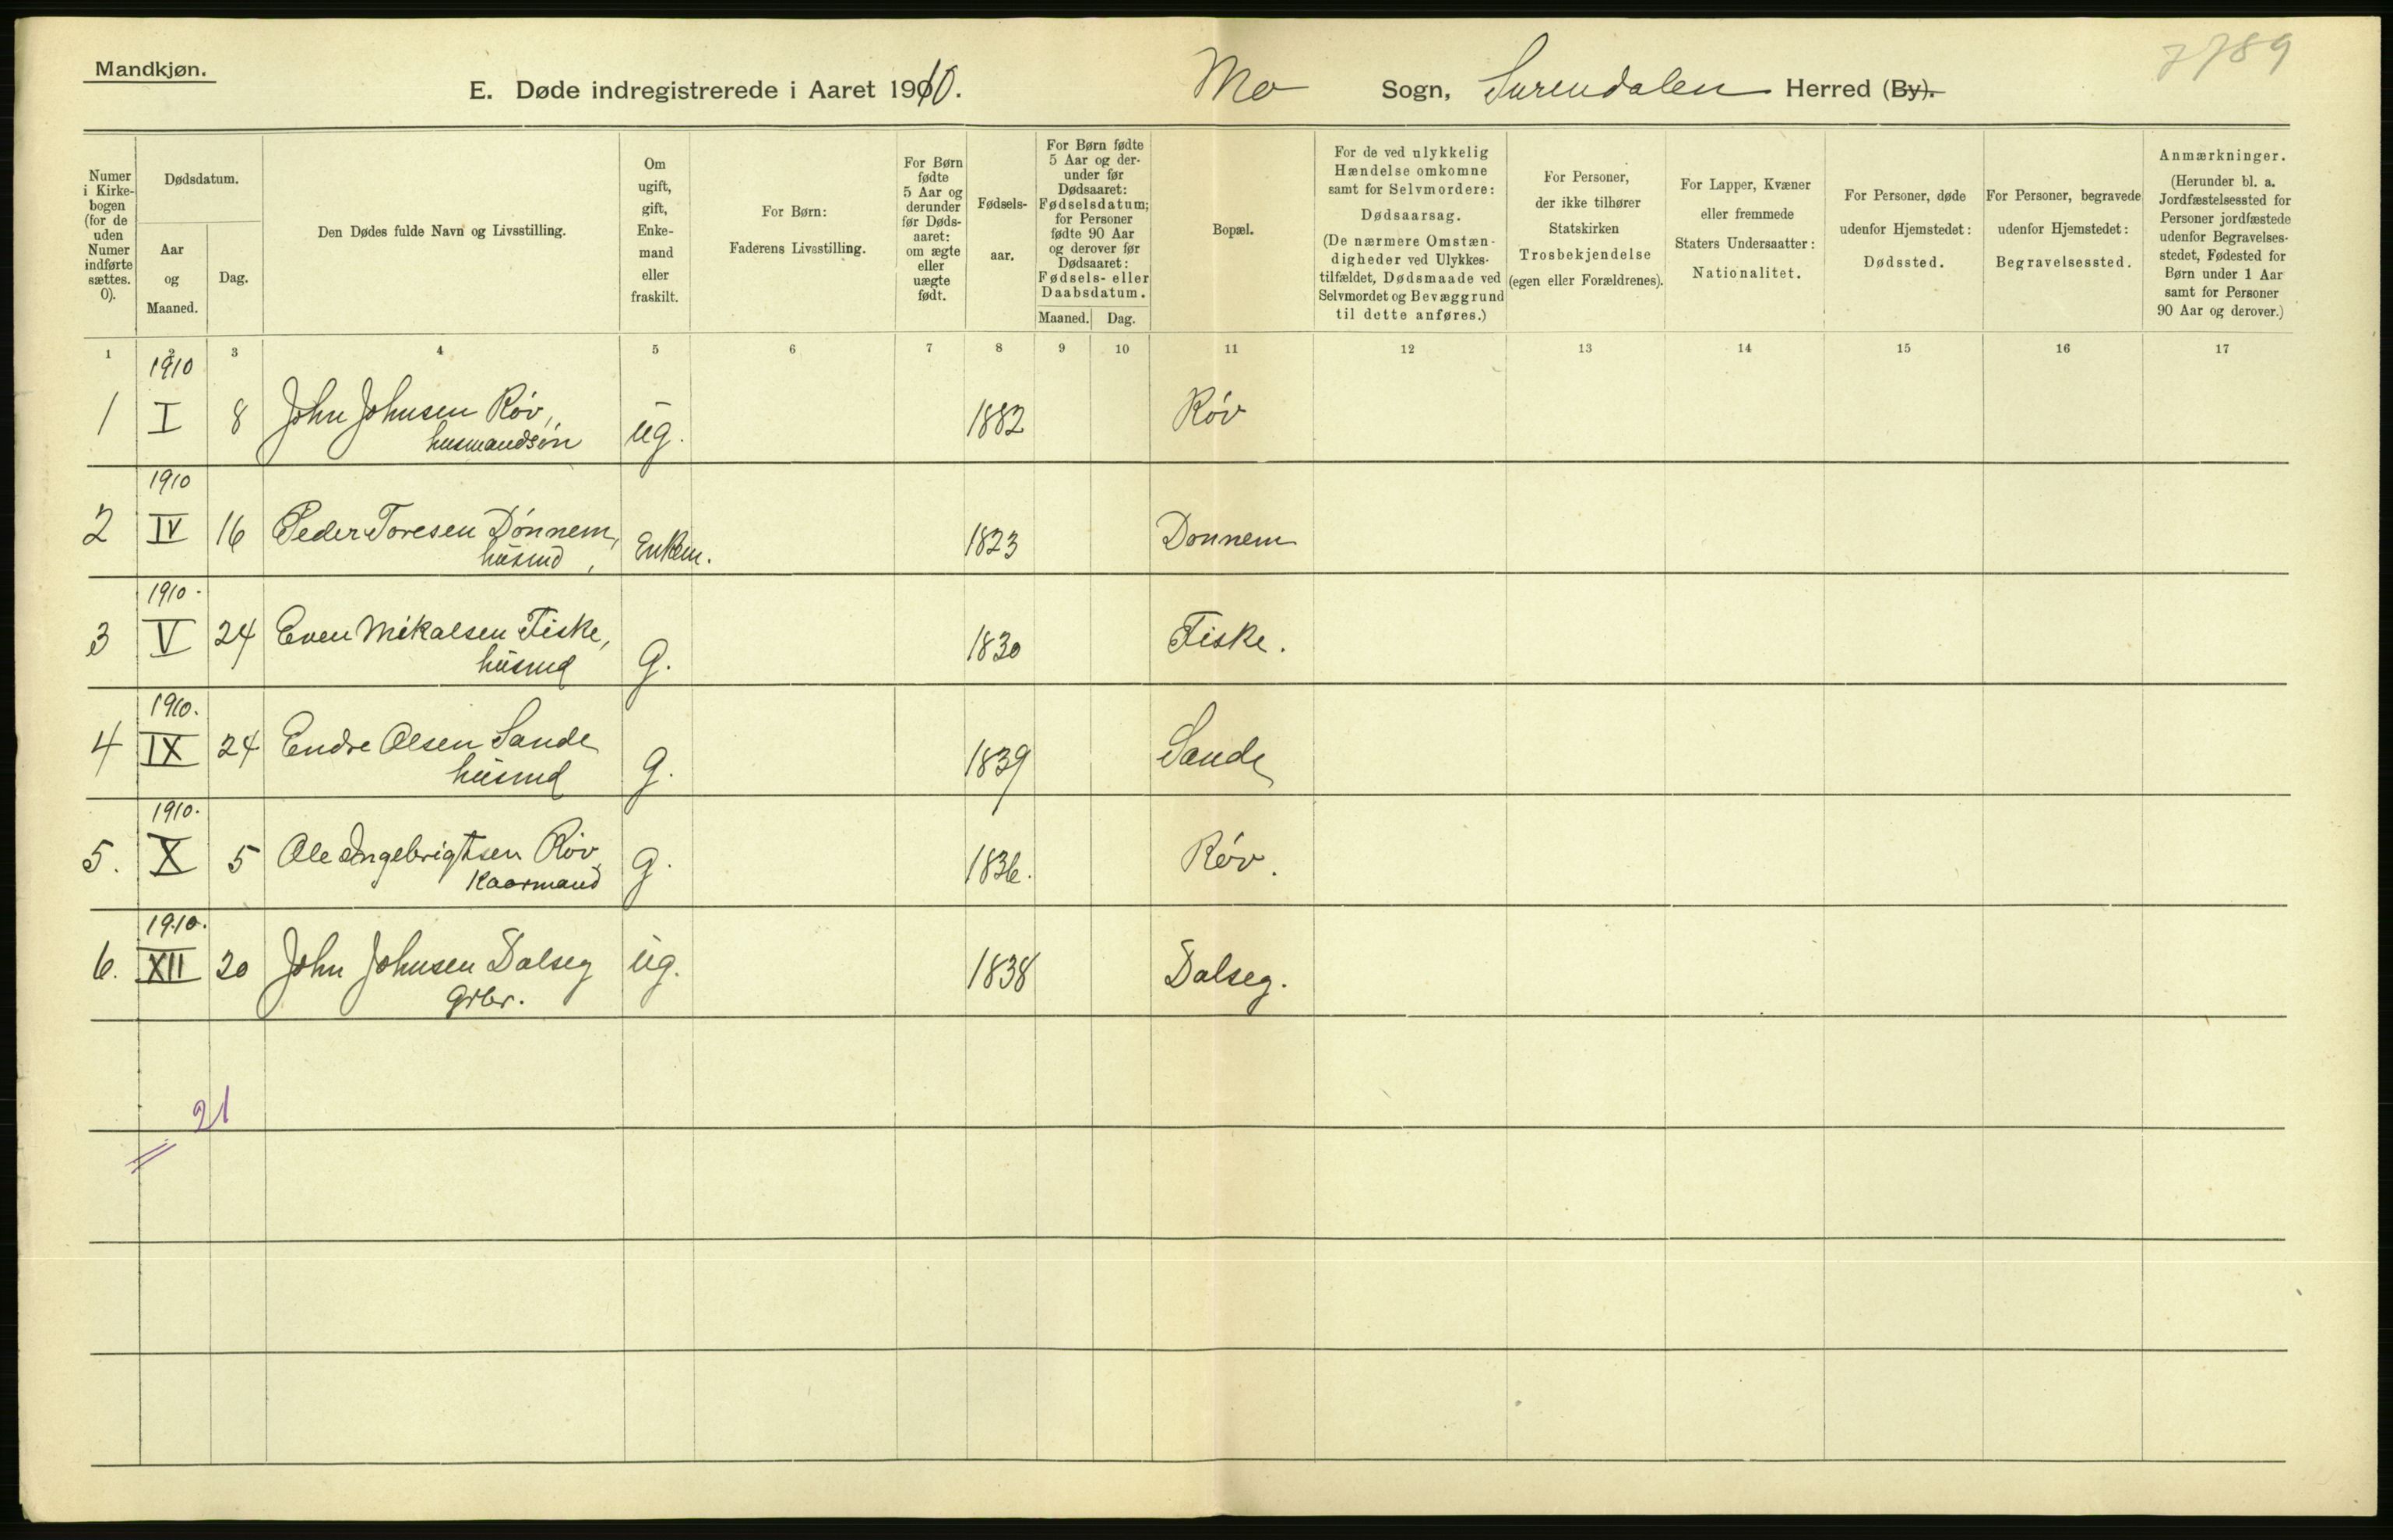 Mandkjøn.
7789
E. Døde indregistrerede i Aaret 1910. Mo Sogn, Surendalen Herred (By).
Numer
i Kirke-
bogen
(for de
uden
Numer
indførte
sættes.
0).
Dødsdatum.
Aar
og
Maaned.
Dag.
Den Dødes fulde Navn og Livsstilling.
Om
ugift,
gift,
Enke-
mand
eller
fraskilt.
For Børn:
Faderens Livsstilling.
For Børn
fødte
5 Aar og
derunder
før Døds-
aaret:
om ægte
eller
uægte
født.
Fødsels-
aar.
For Børn fødte
5 Aar og der-
under før
Dødsaaret:
Fødselsdatum;
for Personer
fødte 90 Aar
og derover før
Dødsaaret:
Fødsels- eller
Daabsdatum.
Maaned. Dag.
Bopæl.
For de ved ulykkelig
Hændelse omkomne
samt for Selvmordere:
Dødsaarsag.
(De nærmere Omstæn-
digheder ved Ulykkes-
tilfældet, Dødsmaade ved
Selvmordet og Bevæggrund
til dette anføres.)
For Personer,
der ikke tilhører
Statskirken
Trosbekjendelse
(egen eller Forældrenes).
For Lapper, Kvæner
eller fremmede
Staters Undersaatter:
Nationalitet.
For Personer, døde
udenfor Hjemstedet:
Dødssted.
For Personer, begravede
udenfor Hjemstedet:
Begravelsessted.
Anmærkninger.
(Herunder bl. a.
Jordfæstelsessted for
Personer jordfæstede
udenfor Begravelses-
stedet, Fødested for
Børn under 1 Aar
samt for Personer
90 Aar og derover.)
1 2 3 4 5 6 7 8 9 10 11 12 13 14 15 16 17
1910
1 I 8 John Johnsen Røv, ug. 1882 Røv
husmandsøn
1910
2 IV 16 Peder Toresen Dønnem, Enkem. 1823 Dønnem
husmd,
1910.
3 V 24 Even Mikalsen Fiske, G. 1830 Fiske.
husmd
1910.
4 IX 24 Endre Olsen Sande g. 1839 Sande
husmd
1910.
5. X 5 Ole Ingebrigtsen Røv, g. 1836. Røv.
Kaarmand
1910.
6. XII 20 John Johnsen Dalseg ug. 1838 Dalseg.
grbr.
21